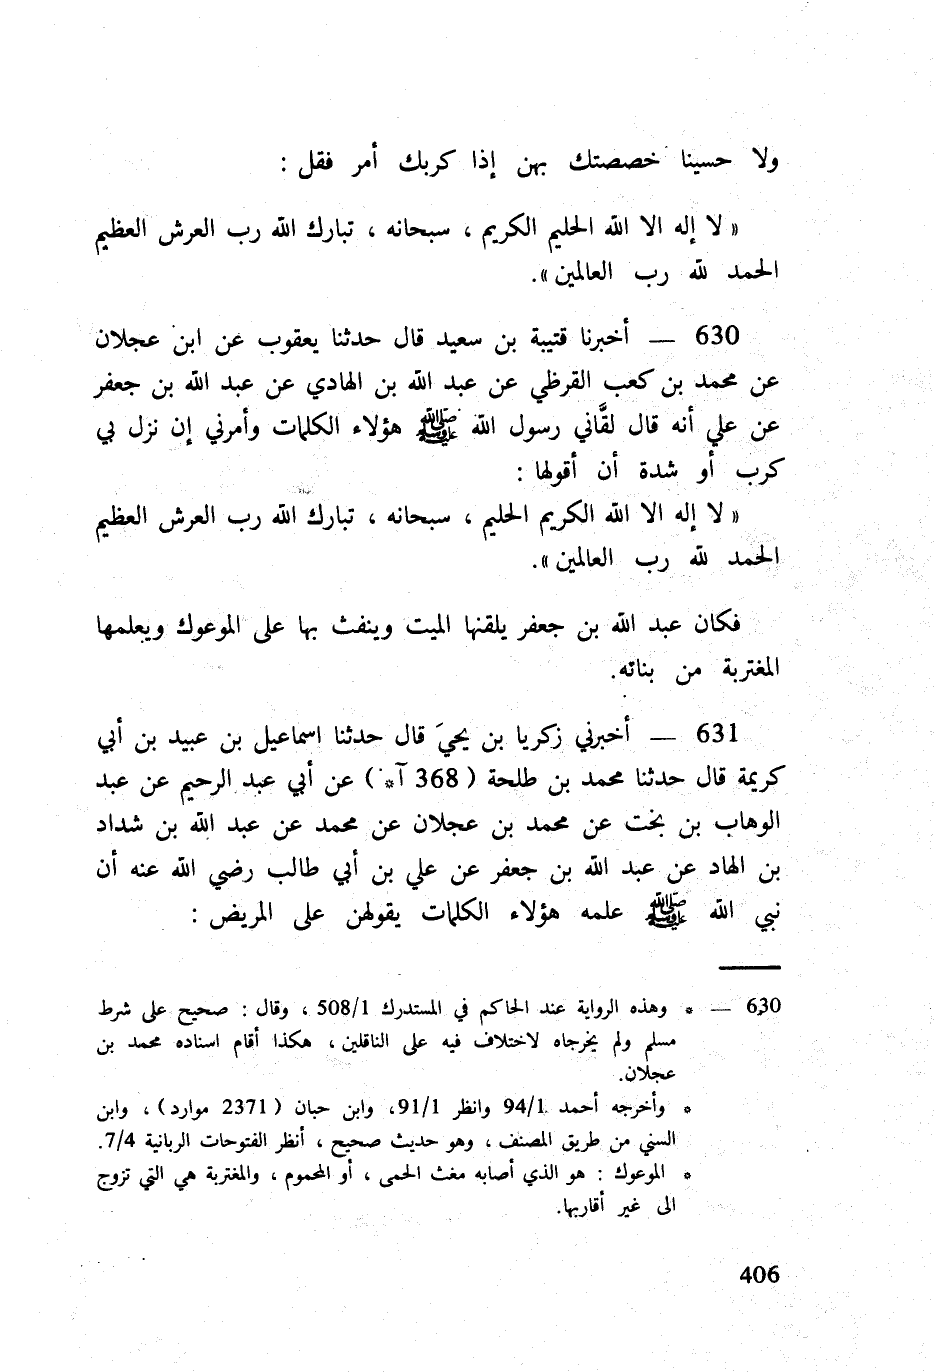 ولا حسينا خصصتك بهن إذا كربك أمر فقل :
« لا إله الا الله الحليم الكريم ، سبحانه ، تبارك الله رب العرش العظيم
الحمد لله رب العالمين».
630 — أخبرنا قتيبة بن سعيد قال حدثنا يعقوب عن ابن عجلان
عن محمد بن كعب القرظي عن عبد الله بن الهادي عن عبد الله بن جعفر
عن علي أنه قال لقَّاني رسول الله ﷺ هؤلاء الكلمات وأمرني إن نزل بي
كرب أو شدة أن أقولها :
« لا إله الا الله الكريم الحليم ، سبحانه ، تبارك الله رب العرش العظيم
الحمد لله رب العالمين».
فكان عبد الله بن جعفر يلقنها الميت وينفث بها على الموعوك ويعلمها
المغتربة من بناته.
631 — أخبرني زكريا بن يحيَ قال حدثنا اسماعيل بن عبيد بن أبي
كريمة قال حدثنا محمد بن طلحة ( 368 آ* ) عن أبي عبد الرحيم عن عبد
الوهاب بن بخت عن محمد بن عجلان عن محمد عن عبد الله بن شداد
بن الهاد عن عبد الله بن جعفر عن علي بن أبي طالب رضي الله عنه أن
نبي الله ﷺ علمه هؤلاء الكلمات يقولهن على المريض :
630 — * وهذه الرواية عند الحاكم في المستدرك 508/1 ، وقال : صحيح على شرط
مسلم ولم يخرجاه لاختلاف فيه على الناقلين ، هكذا أقام اسناده محمد بن
عجلان.
* وأخرجه أحمد 94/1 وانظر 91/1، وابن حبان ( 2371 موارد) ، وابن
السني من طريق المصنف ، وهو حديث صحيح ، أنظر الفتوحات الربانية 7/4.
* الموعوك : هو الذي أصابه مغث الحمى ، أو المحموم ، والمغتربة هي التي تزوج
الى غير أقاربها.
406